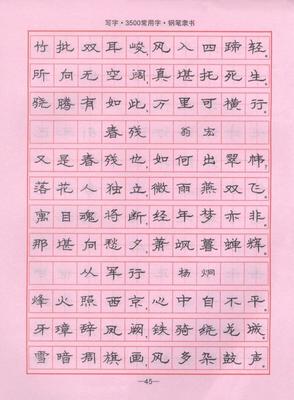 写字·3500常用字·钢笔隶书
竹批双耳峻风入四蹄轻
所向无空阔真堪托死生
骁腾有如此，万里可横行
春残 翁宏
又是春残也，如何出翠帏
落花人独立，微雨燕双飞
寓目魂将断，经年梦亦非
那堪向愁夕，萧飒暮蝉辉
从军行 杨炯
烽火照西京，心中自不平
牙璋辞凤阙，铁骑绕龙城
雪暗凋旗画，风多杂鼓声
—45—